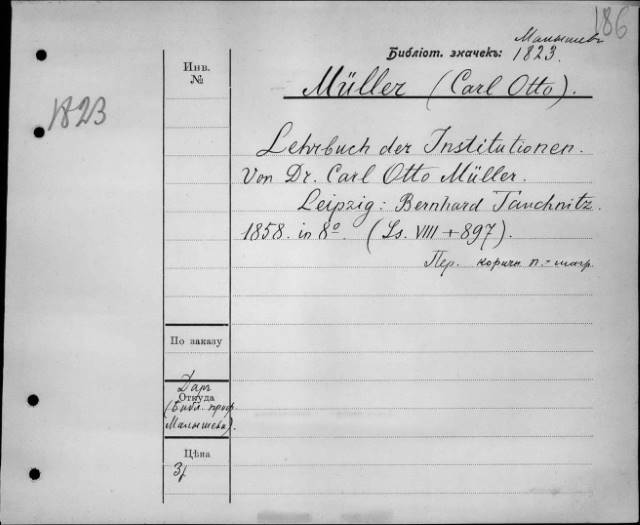 186
Малышевъ
Библіот. значекъ: 1823.
Инв.
№
1823
Müller (Carl Otto).
Lehrbuch der Institutionen.
Von Dr. Carl Otto Müller.
Leipzig: Bernhard Tauchnitz.
1858. in 8º. (Ss. VIII + 897).
Пер. коричн. п.-шагр.
По заказу
Даръ
Откуда
(Библ. проф.
Малышева).
Цѣна